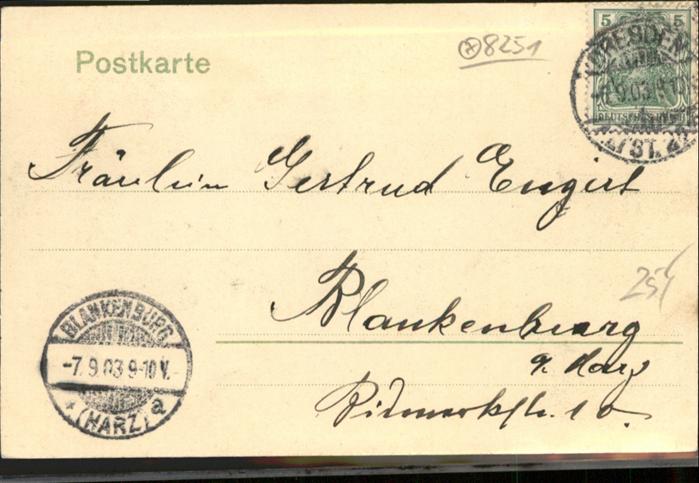 Postkarte
8251
5 5
DEUTSCHES REICH
DRESDEN
9.03
Fräulein Gertrud Engert
Blankenburg
a. Harz
Bismarckstr. 10.
251
BLANKENBURG
-7.9.03 9-10 V.
* (HARZ) a